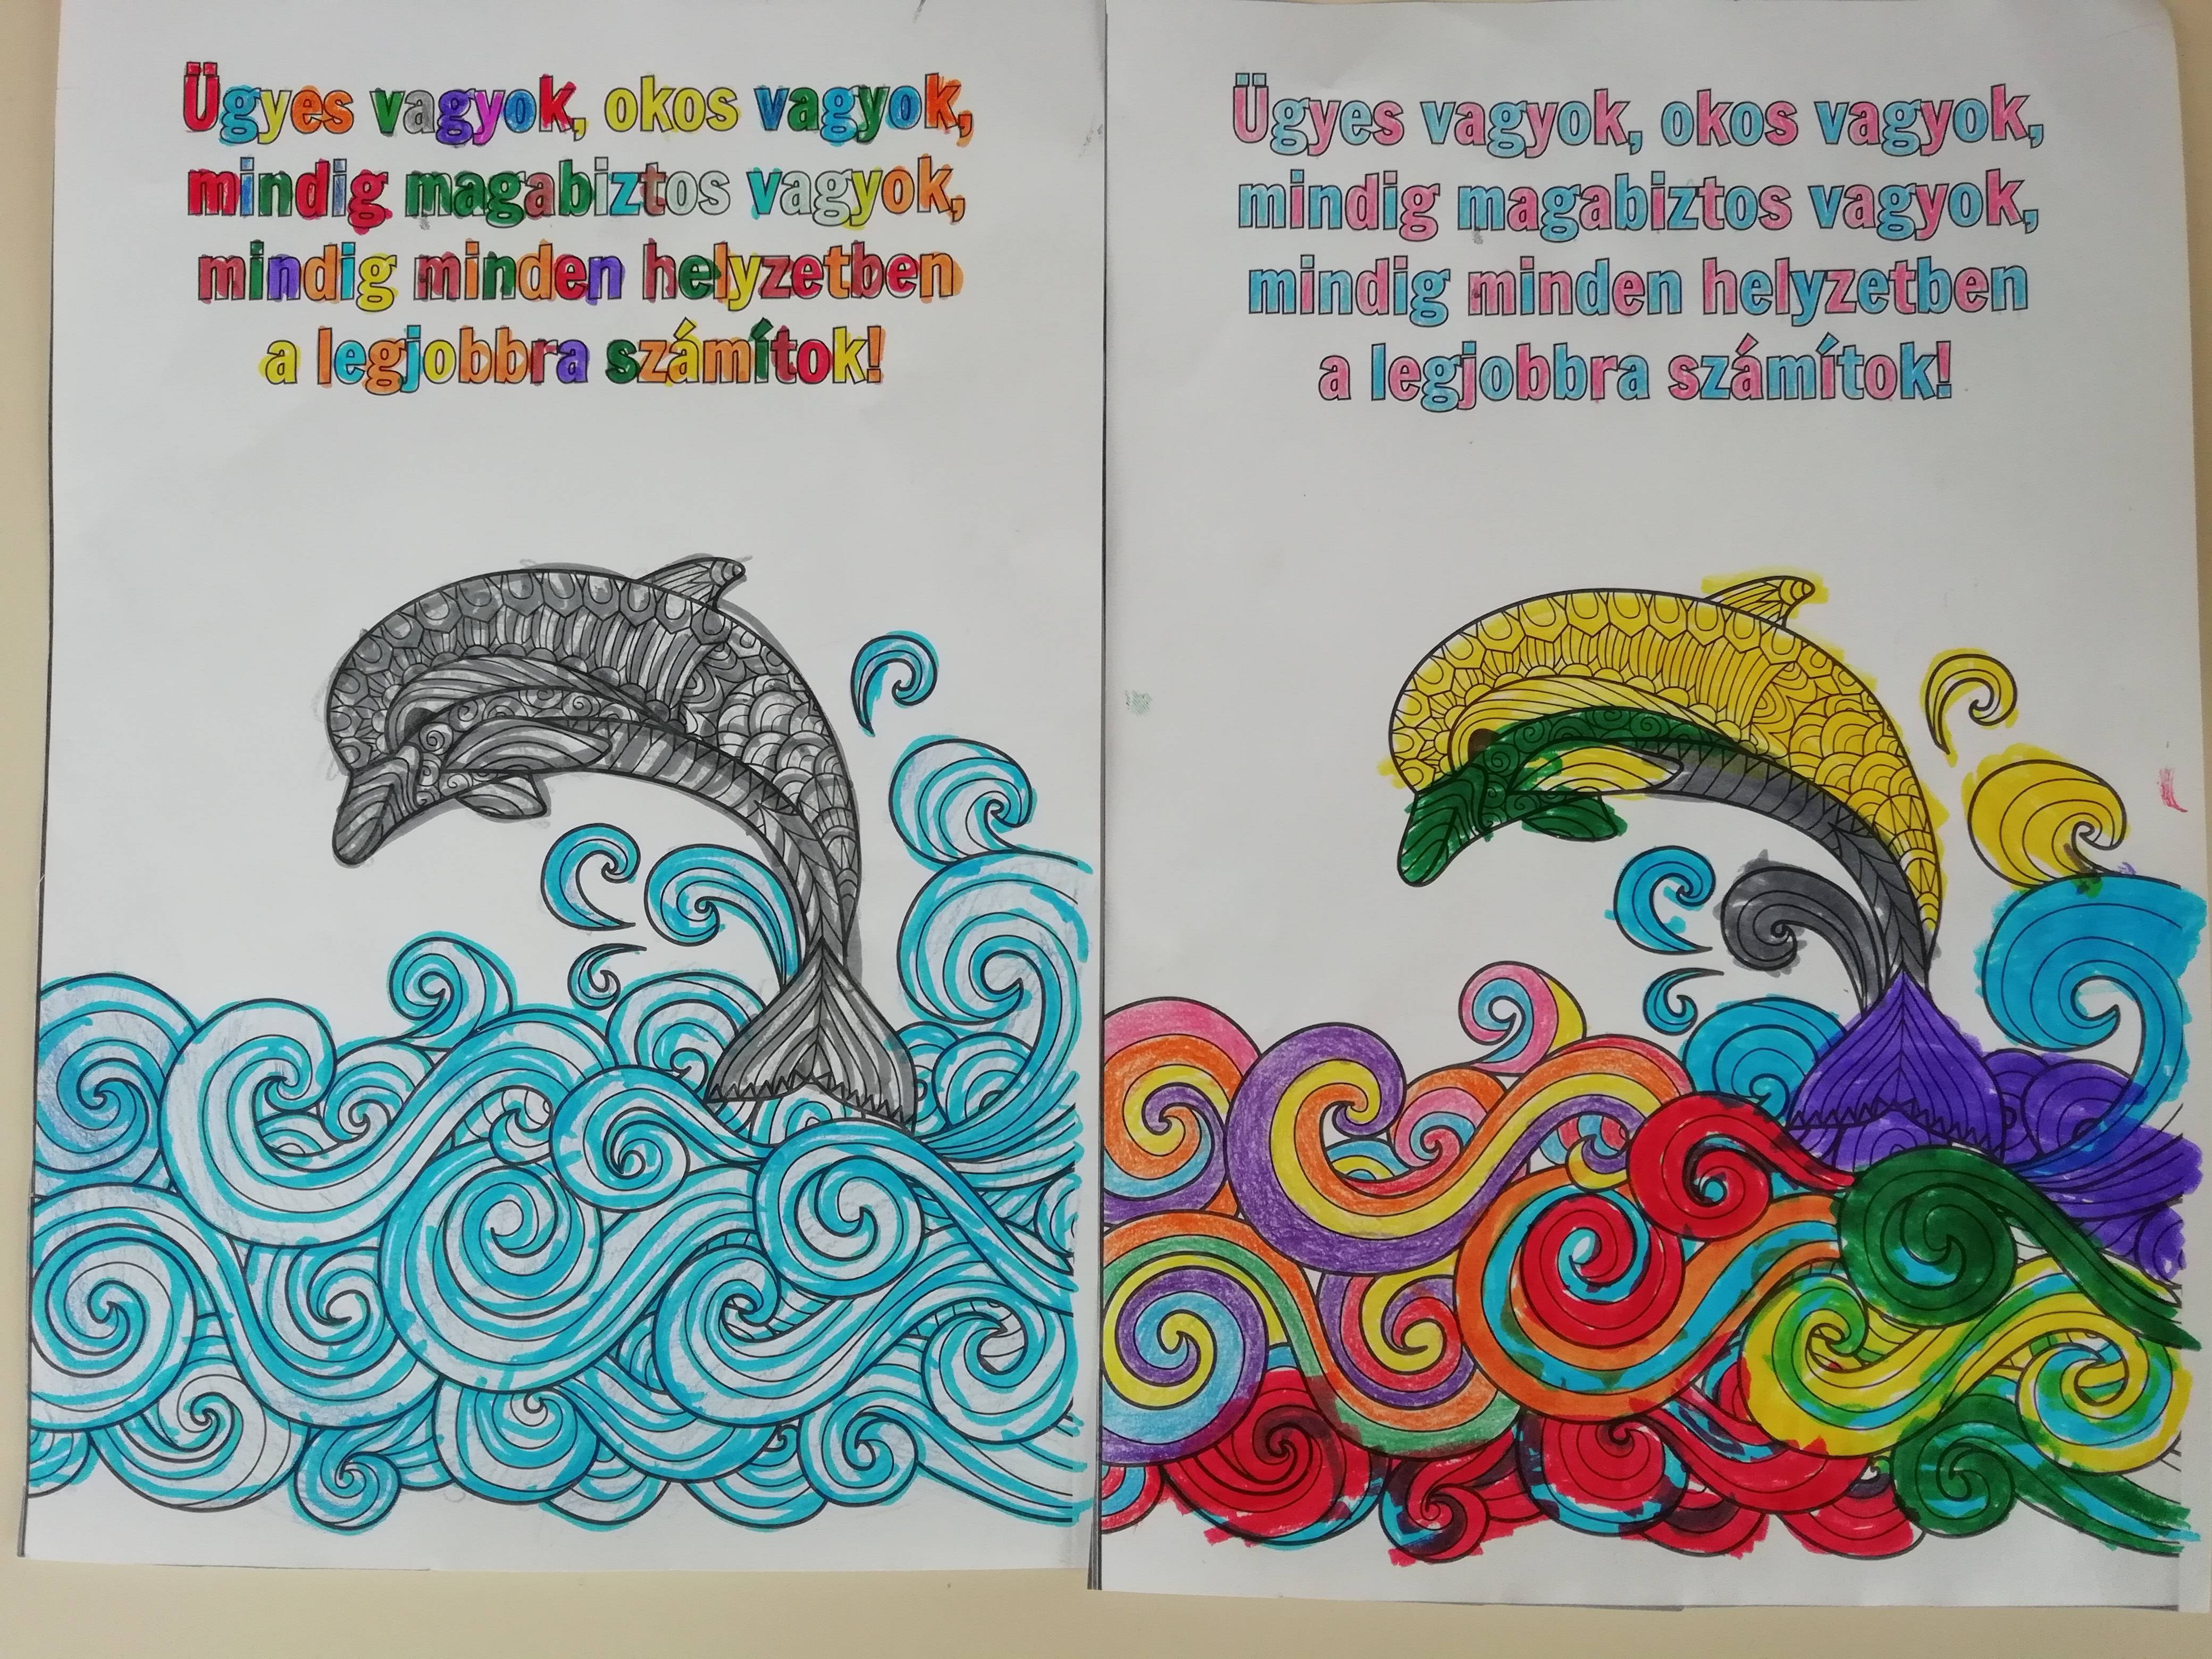 Ügyes vagyok, okos vagyok,
mindig magabiztos vagyok,
mindig minden helyzetben
a legjobbra számítok!
Ügyes vagyok, okos vagyok,
mindig magabiztos vagyok,
mindig minden helyzetben
a legjobbra számítok!